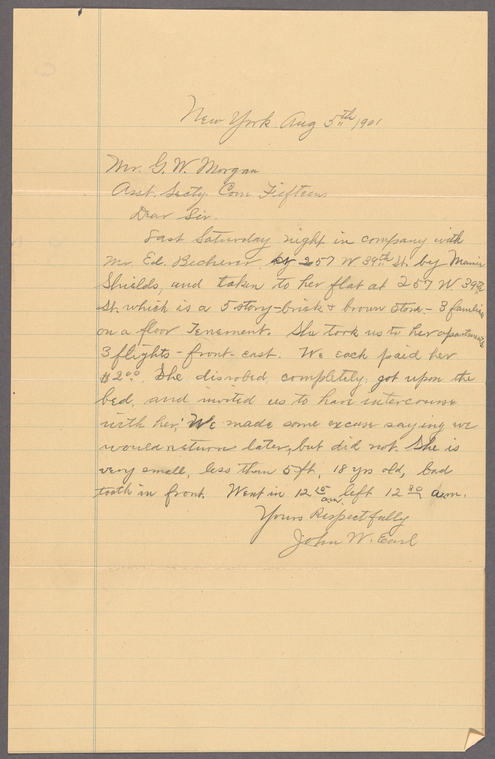 New York Aug 5th 1901
Mr. G. W. Morgan
Asst. Secty Com Fifteen
Dear Sir.
Last Saturday night in company with
Mr. Ed. Becherer 257 W 39th St. by Mamie
Shields, and taken to her flat at 257 W 39th
St. which is a 5 story-brick & brown stone - 3 families
on a floor Tenement. She took us to her apartments
3 flights - front - east. We each paid her
$2.00. She disrobed, completely, got upon the
bed, and invited us to have intercourse
with her. We made some excuse saying we
would return later, but did not. She is
very small, less than 5 ft, 18 yrs old, bad
tooth in front. Went in 12 15 am. left 12 30 a.m.
Yours Respectfully
John W. Earl